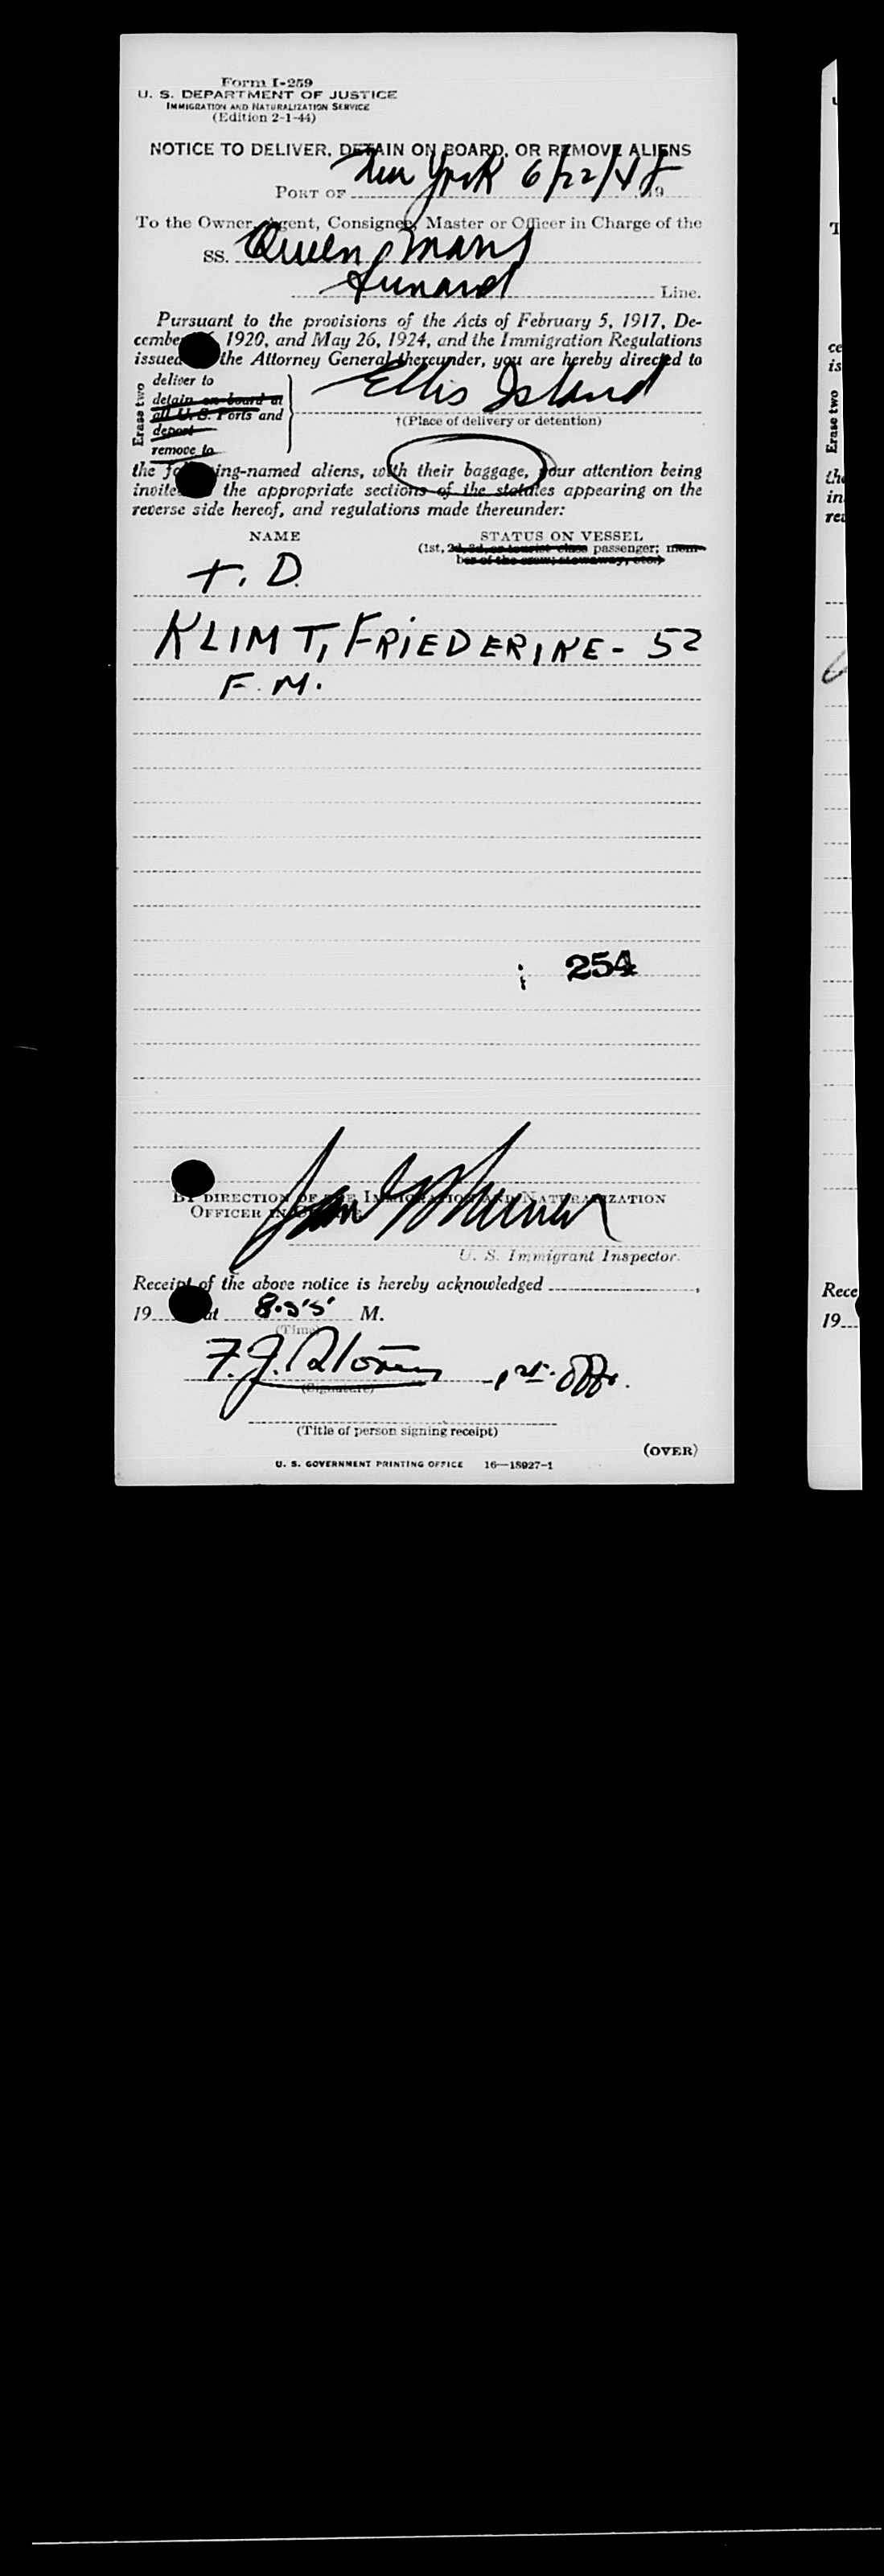 Form I-259
U. S. DEPARTMENT OF JUSTICE
IMMIGRATION AND NATURALIZATION SERVICE
(Edition 2-1-44)
NOTICE TO DELIVER, DETAIN ON BOARD, OR REMOVE ALIENS
PORT OF New York 6/22/48 19
To the Owner, Agent, Consignee, Master or Officer in Charge of the
SS. Queen Mary
Cunard Line.
Pursuant to the provisions of the Acts of February 5, 1917, De-
cember 1920, and May 26, 1924, and the Immigration Regulations
issued the Attorney General thereunder, you are hereby directed to
Erase two
deliver to
detain on board at
all U. S. Ports and
deport
remove to
Ellis Island
†(Place of delivery or detention)
the ing-named aliens, with their baggage, your attention being
invite the appropriate sections of the statutes appearing on the
reverse side hereof, and regulations made thereunder:
NAME STATUS ON VESSEL
(1st, 2d, 3d, or tourist class passenger; mem-
ber of the crew; stowaway, etc.)
T. D.
KLIMT, FRIEDERIKE - 52
F. M.
254
BY DIRECTION OF THE IMMIGRATION AND NATURALIZATION
OFFICER IN CHARGE
U. S. Immigrant Inspector.
Receipt of the above notice is hereby acknowledged ,
19 at 8.55 M.
(Time)
F. J.
(Signature)
(Title of person signing receipt)
(OVER)
U. S. GOVERNMENT PRINTING OFFICE 16—18927-1
ce
is
Erase two
the
in
rev
Rece
19